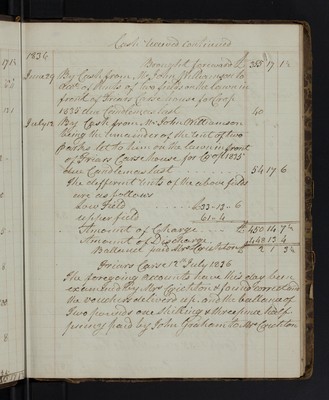 Cash received continued
1836
Brought forward £ 355 17 1½
June 29 By Cash from Mr John Williamson to
acct of rents of two fields on the lawn in
front of Friars Carse house for Crop
1835 due Candlemas last 40
July 12 By Cash from Mr John Williamson
being the remainder of the rent of two
parks let to him on the lawn in front
of Friars Carse house for Crop 1835
due Candlemas last 54 17 6
The different rents of the above fields
are as follows
Low field £33-13-6
upper field 61-4
Amount of Charge £ 450 14 7½
Amount of Discharge 448 13 4
Ballance paid Mrs Crichton £ 2 1 3½
Friars Carse 12th July 1836
The foregoing accounts have this day been
examined by Mrs Crichton & found correct and
the vouchers delivered up and the ballance of
Two pounds one shilling & three pence half
penny paid by John Graham to Mrs Crichton